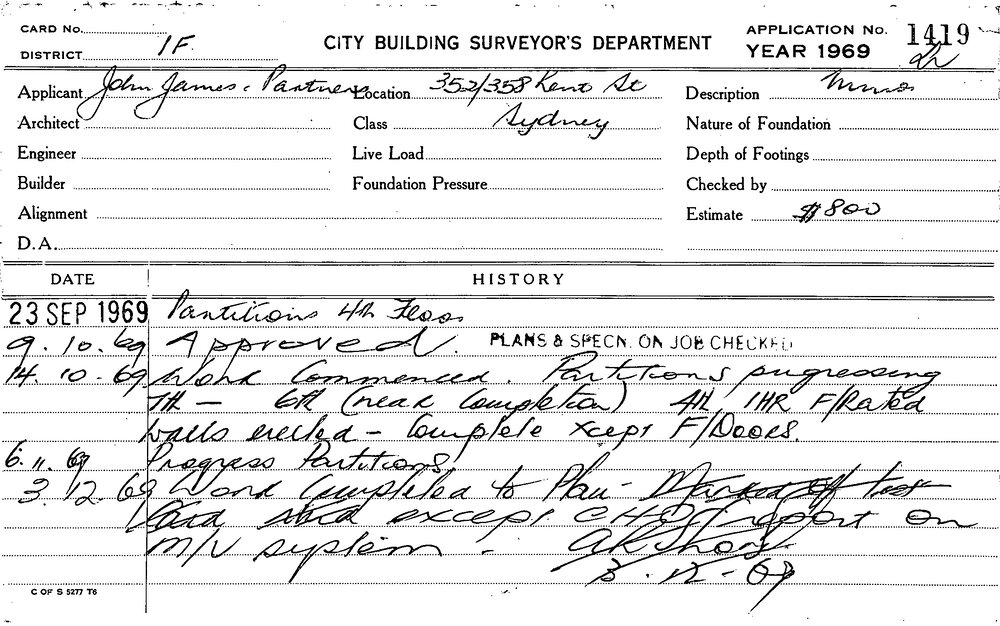 CARD No.
DISTRICT 1F
CITY BUILDING SURVEYOR'S DEPARTMENT
APPLICATION No. 1419
YEAR 1969
Applicant John James & Partners
Location 352/358 Kent St
Description Minor
Architect
Class Sydney
Nature of Foundation
Engineer
Live Load
Depth of Footings
Builder
Foundation Pressure
Checked by
Alignment
Estimate $800
D.A.
DATE
HISTORY
23 SEP 1969 Partitions 4th Floor
9.10.69 Approved. PLANS & SPECN. ON JOB CHECKED
14.10.69 Work Commenced. Partitions progressing
7th - 6th (near Completion) 4th 1HR F/Rated
walls erected - Complete xcept F/Doors.
6.11.69 Progress Partitions
3.12.69 Work Completed to Plan - Marked off
except report on
M/V system -
3-12-69
C OF S 5277 T6